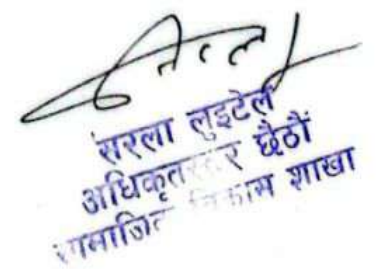 सरला
सरला लुइटेल
अधिकृतस्तर छैठौं
सामाजिक विकास शाखा